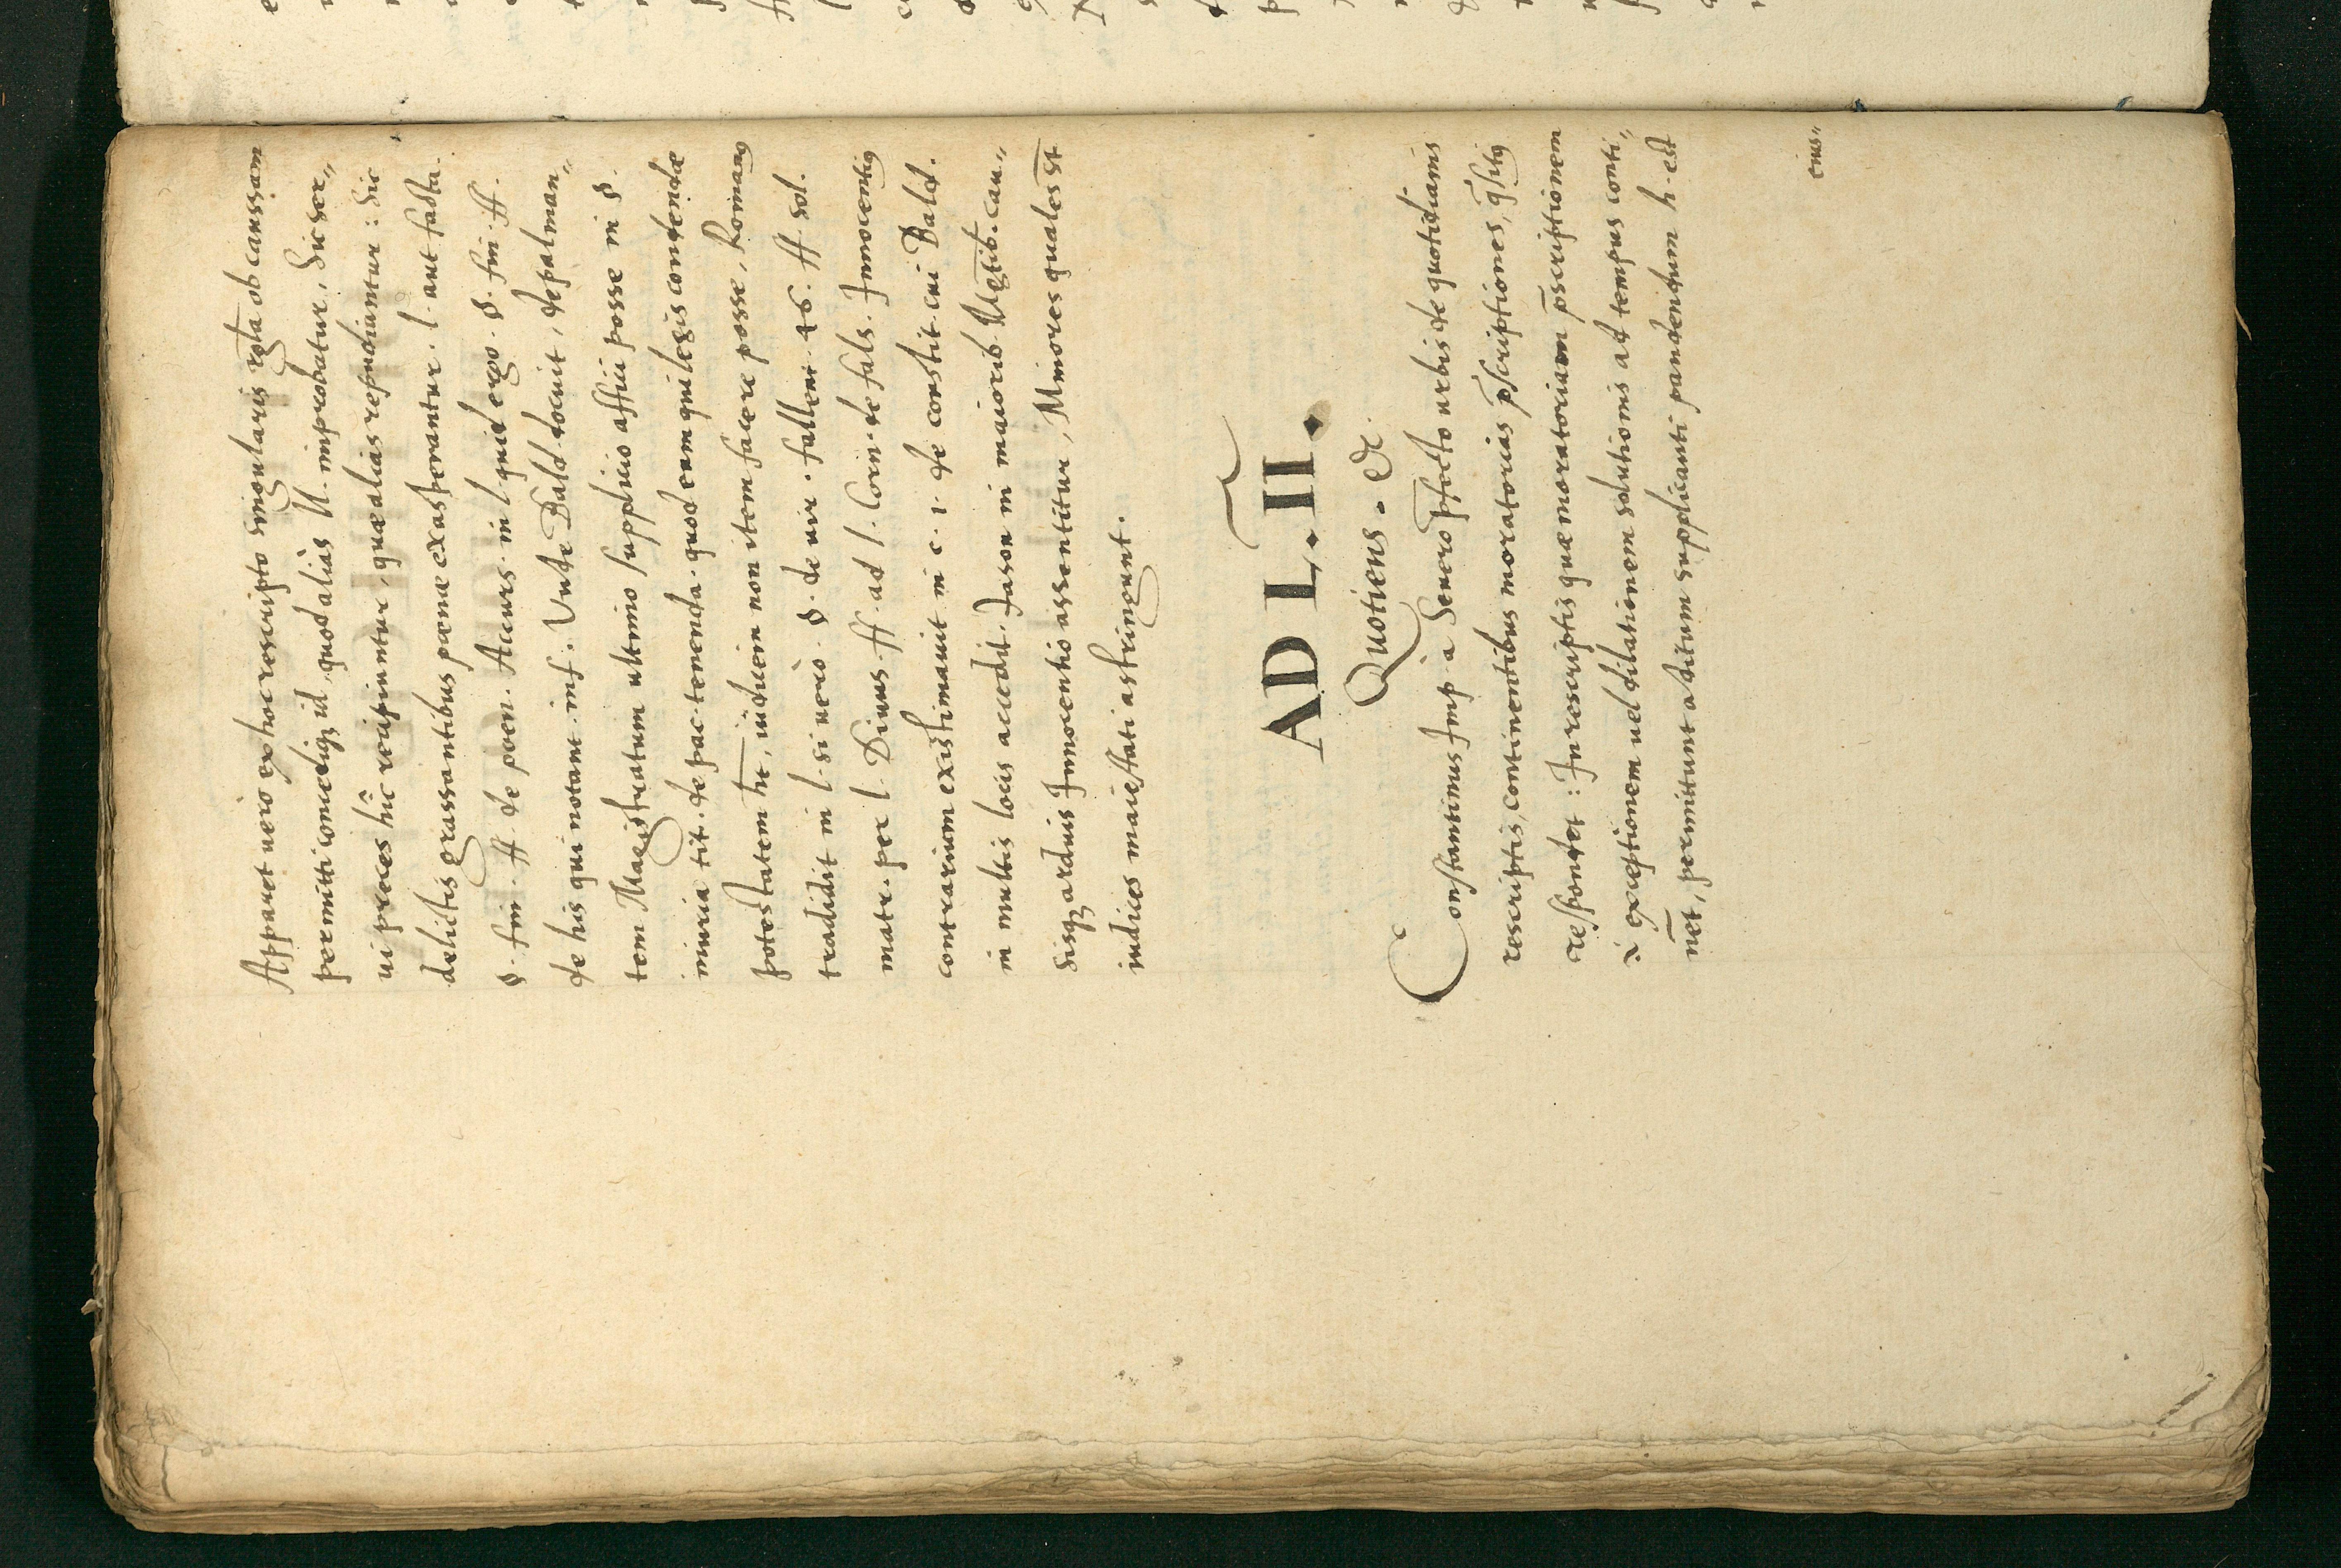 Apparet uero ex hoc rescripto singularis rogata ob caussam
permitti concediq; id, quod aliàs ll. improbatur, Sic ser„
ui preces hîc recipiuntur, quæ aliàs repudiantur: Sic
delictis grassantibus pœnæ exasperantur. l. aut facta.
§. fin. ff. de poen. Accurs. in l. quid ergo. §. fin. ff.
de his qui notant. inf. Vnde Bald. docuit, depalman„
tem Magistratum ultimo supplicio affici posse in §.
iniuria tit. de pac. tenenda. quod eum qui legis condendæ
potestatem ht, iudicem non item facere posse, Romanꝰ
tradidit in l. si uerò. §. de uir. fallen. 46. ff. sol.
matr. per l. Diuus. ff. ad l. Corn. de fals. Innocentiꝰ
contrarium existimauit in c. 1. de constit. cui Bald.
in multis locis accedit. Jason in maiorib. cau„
sisq; arduis Innocentio assentitur, Minores quales st
iudices maiestati astringunt.
AD L. II.
Quotiens. &c.
Constantinus Imp. à Seuero pfecto urbis de quotidianis
rescriptis, continentibus moratorias pscriptiones,
respondet: In rescriptis quæ moratoriam pscriptionem
exceptionem uel dilationem solutionis ad tempus conti„
net, permittunt aditum supplicanti pandendum h. est
eius„